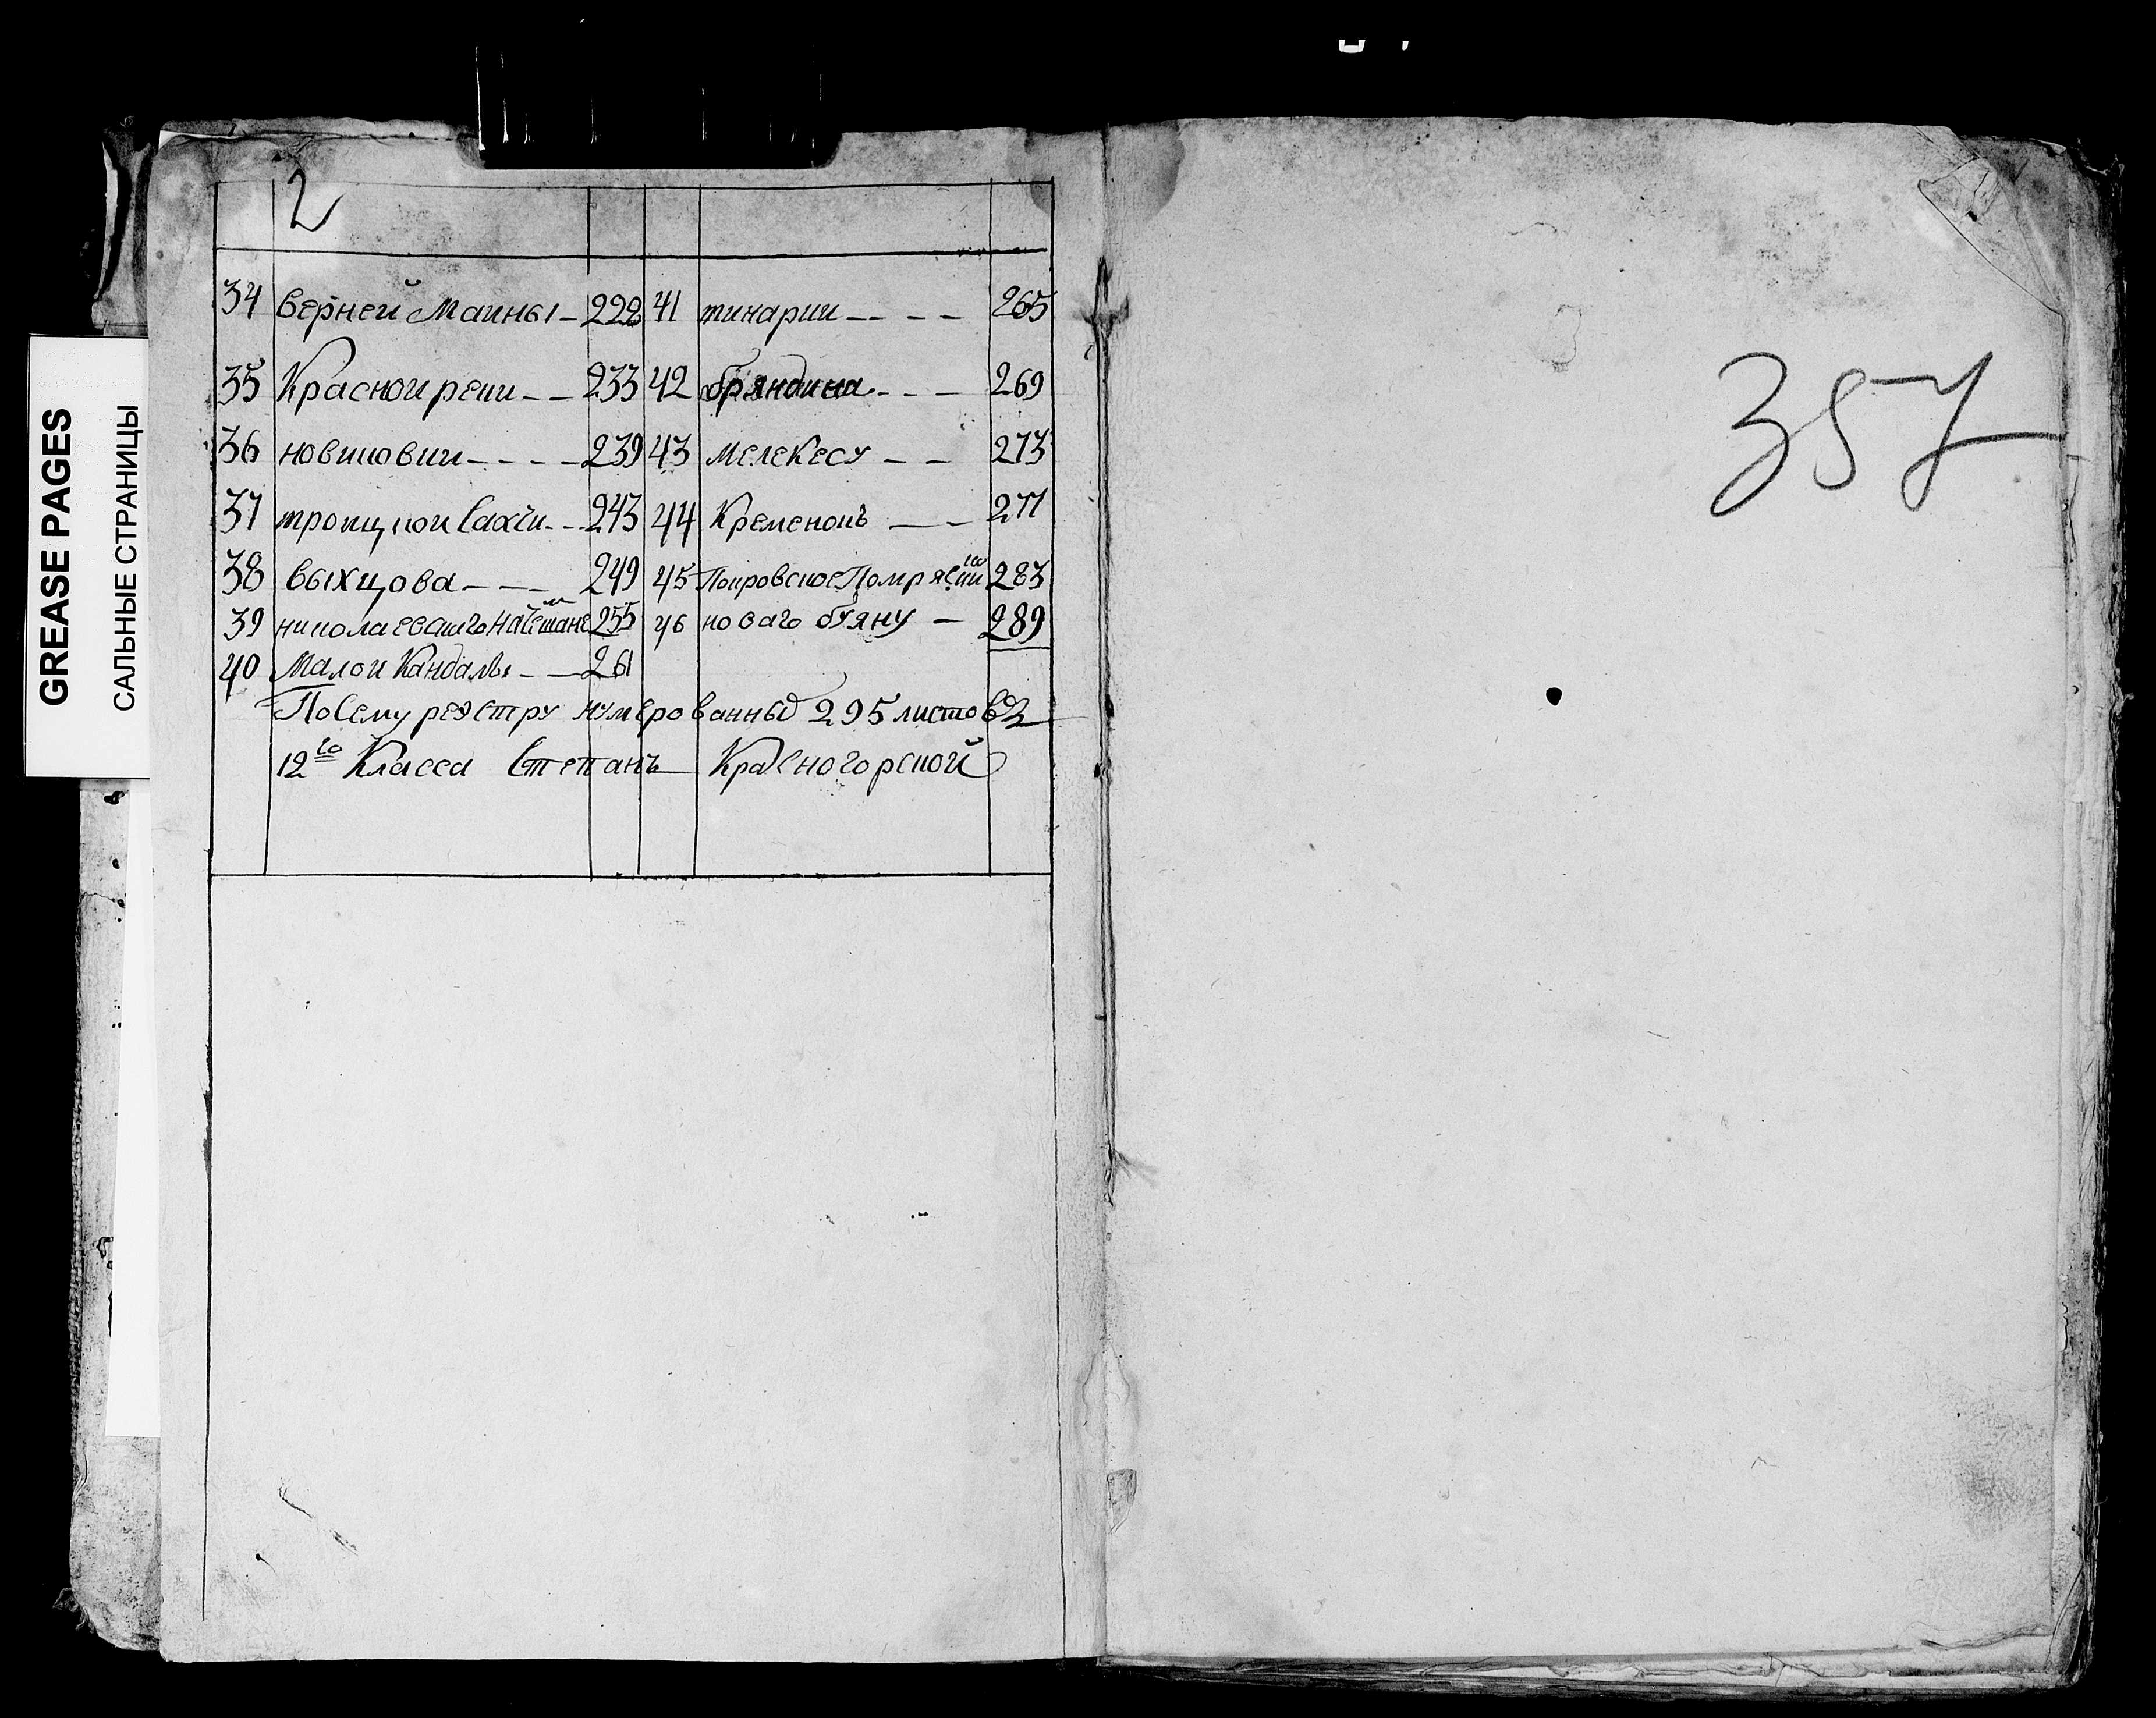 2
34 верней Маины 228 41 тинарии 265
35 Краснои реки 233 42 брандина 269
36 новиковки 239 43 мелекесу 273
37 троицкои Сахчи 243 44 Кременокъ 277
38 выхцова 249 45 Покровское 283
39 николаевскаго на 255 46 новаго буяну 289
40 Малои Кандалы 261
По Сему реэстру нумерованных 295 листовъ
12го Класса Степанъ Красногорской
357
GREASE PAGES
САЛЬНЫЕ СТРАНИЦЫ